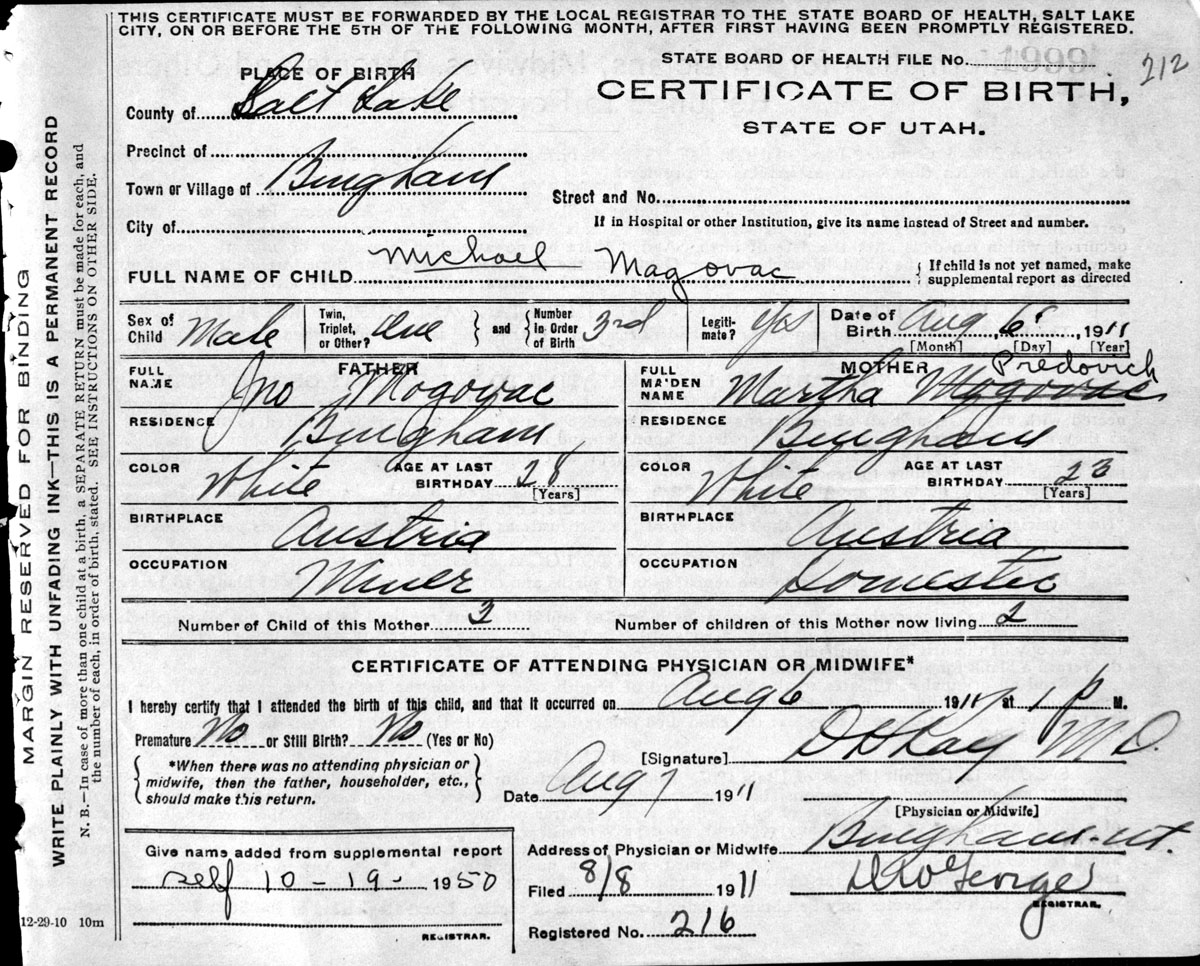 THIS CERTIFICATE MUST BE FORWARDED BY THE LOCAL REGISTRAR TO THE STATE BOARD OF HEALTH, SALT LAKE
CITY, ON OR BEFORE THE 5TH OF THE FOLLOWING MONTH, AFTER FIRST HAVING BEEN PROMPTLY REGISTERED.
STATE BOARD OF HEALTH FILE No. 1999 212
PLACE OF BIRTH
CERTIFICATE OF BIRTH,
STATE OF UTAH.
County of Salt Lake
Precinct of
Town or Village of Bingham
Street and No.
City of
If in Hospital or other Institution, give its name instead of Street and number.
FULL NAME OF CHILD Michael Magovac
{ If child is not yet named, make
supplemental report as directed
Sex of Child Male
Twin, Triplet, or Other? One } and { Number in Order of Birth 3rd
Legiti-mate? Yes
Date of Birth Aug 6 1911
[Month] [Day] [Year]
FATHER
FULL NAME Jno Mogovac
RESIDENCE Bingham
COLOR White AGE AT LAST BIRTHDAY 28
[Years]
BIRTHPLACE Austria
OCCUPATION Miner
MOTHER
FULL MAIDEN NAME Martha Mogovac Predovich
RESIDENCE Bingham
COLOR White AGE AT LAST BIRTHDAY 23
[Years]
BIRTHPLACE Austria
OCCUPATION Domestic
Number of Child of this Mother 3 Number of children of this Mother now living 2
CERTIFICATE OF ATTENDING PHYSICIAN OR MIDWIFE*
I hereby certify that I attended the birth of this child, and that it occurred on Aug 6 1911 at 1 P M.
Premature No or Still Birth? No (Yes or No)
{ *When there was no attending physician or
midwife, then the father, householder, etc.,
should make this return. }
[Signature] Kay M.D.
Date Aug 7 1911
[Physician or Midwife]
Address of Physician or Midwife Bingham-ut.
Filed 8/8 1911 George
REGISTRAR.
Registered No. 216
Give name added from supplemental report
self 10-19- 1950
REGISTRAR.
12-29-10 10m
MARGIN RESERVED FOR BINDING
WRITE PLAINLY WITH UNFADING INK—THIS IS A PERMANENT RECORD
N. B.—In case of more than one child at a birth, a SEPARATE RETURN must be made for each, and
the number of each, in order of birth, stated. SEE INSTRUCTIONS ON OTHER SIDE.